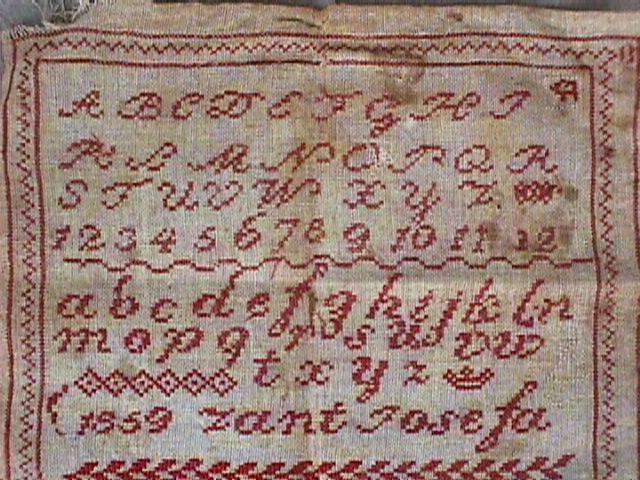 A B C D E F G H I
K L M N O P Q R
S T U V W X Y Z
1 2 3 4 5 6 7 8 9 10 11 12
a b c d e f g h i j k l n
m o p q r s u v w
t x y z
1959 Zant Josefa